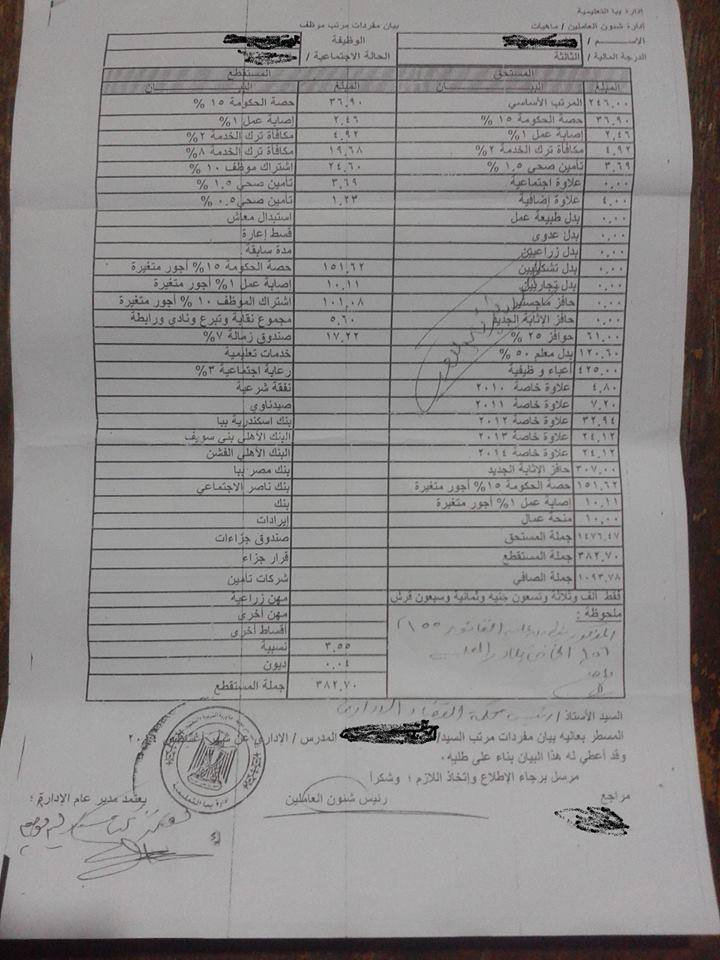 إدارة ببا التعليمية
إدارة شئون العاملين / ماهيات
بيان مفردات مرتب موظف
الاســـم /
الوظيفة
الدرجة المالية / الثالثة
الحالة الاجتماعية /
المستحق
المستقطع
المبلغ البيـــــــــان
المبلغ البيـــــــــان
٢٤٦,٠٠ المرتب الأساسي
٣٦,٩٠ حصة الحكومة ١٥ %
٣٦,٩٠ حصة الحكومة ١٥ %
٢,٤٦ إصابة عمل ١%
٢,٤٦ إصابة عمل ١%
٤,٩٢ مكافأة ترك الخدمة ٢%
٤,٩٢ مكافأة ترك الخدمة ٢%
١٩,٦٨ مكافأة ترك الخدمة ٨%
٣,٦٩ تأمين صحي ١,٥ %
٢٤,٦٠ اشتراك موظف ١٠ %
٠,٠٠ علاوة اجتماعية
٣,٦٩ تأمين صحي ١,٥ %
٤,٠٠ علاوة إضافية
١,٢٣ تأمين صحي ٠,٥ %
٠,٠٠ بدل طبيعة عمل
استبدال معاش
٠,٠٠ بدل عدوى
قسط إعارة
٠,٠٠ بدل زراعيين
مدة سابقة
٠,٠٠ بدل تشكيليين
١٥١,٦٢ حصة الحكومة ١٥% أجور متغيرة
٠,٠٠ بدل تجاريين
١٠,١١ إصابة عمل ١% أجور متغيرة
٠,٠٠ حافز ماجستير
١٠١,٠٨ اشتراك الموظف ١٠ % أجور متغيرة
٠,٠٠ حافز الاثابة الجديد
٥,٦٠ مجموع نقابة وتبرع ونادي ورابطة
٦١,٠٠ حوافز ٢٥ %
١٧,٢٢ صندوق زمالة ٧%
١٢٠,٦٠ بدل معلم ٥٠ %
خدمات تعليمية
٤٢٥,٠٠ أعباء و ظيفية
رعاية اجتماعية ٣%
٤,٨٠ علاوة خاصة ٢٠١٠
نفقة شرعية
٧,٢٠ علاوة خاصة ٢٠١١
صيدناوي
٣٢,٩٤ علاوة خاصة ٢٠١٢
بنك اسكندرية ببا
٢٤,١٢ علاوة خاصة ٢٠١٣
البنك الأهلي بنى سويف
٢٤,١٢ علاوة خاصة ٢٠١٤
البنك الأهلي الفشن
٣٠٧,٠٠ حافز الاثابة الجديد
بنك مصر ببا
١٥١,٦٢ حصة الحكومة ١٥% أجور متغيرة
بنك ناصر الاجتماعي
١٠,١١ إصابة عمل ١% أجور متغيرة
بنك
١٠,٠٠ منحة عمال
إيرادات
١٤٧٦,٤٧ جملة المستحق
صندوق جزاءات
٣٨٢,٧٠ جملة المستقطع
قرار جزاء
١٠٩٣,٧٨ جملة الصافي
شركات تأمين
فقط ألف وثلاثة وتسعون جنيه وثمانية وسبعون قرش
مهن زراعية
ملحوظة :
مهن أخرى
أقساط أخرى
٣,٥٥ نسبية
٠,٠٤ ديون
٣٨٢,٧٠ جملة المستقطع
السيد الأستاذ /
المسطر بعاليه بيان مفردات مرتب السيد/ المدرس / الإداري عن شهر
وقد أعطي له هذا البيان بناء على طلبه.
مرسل برجاء الإطلاع وإتخاذ اللازم ؛ وشكراً
مراجع
رئيس شئون العاملين
يعتمد مدير عام الإدارة ؛